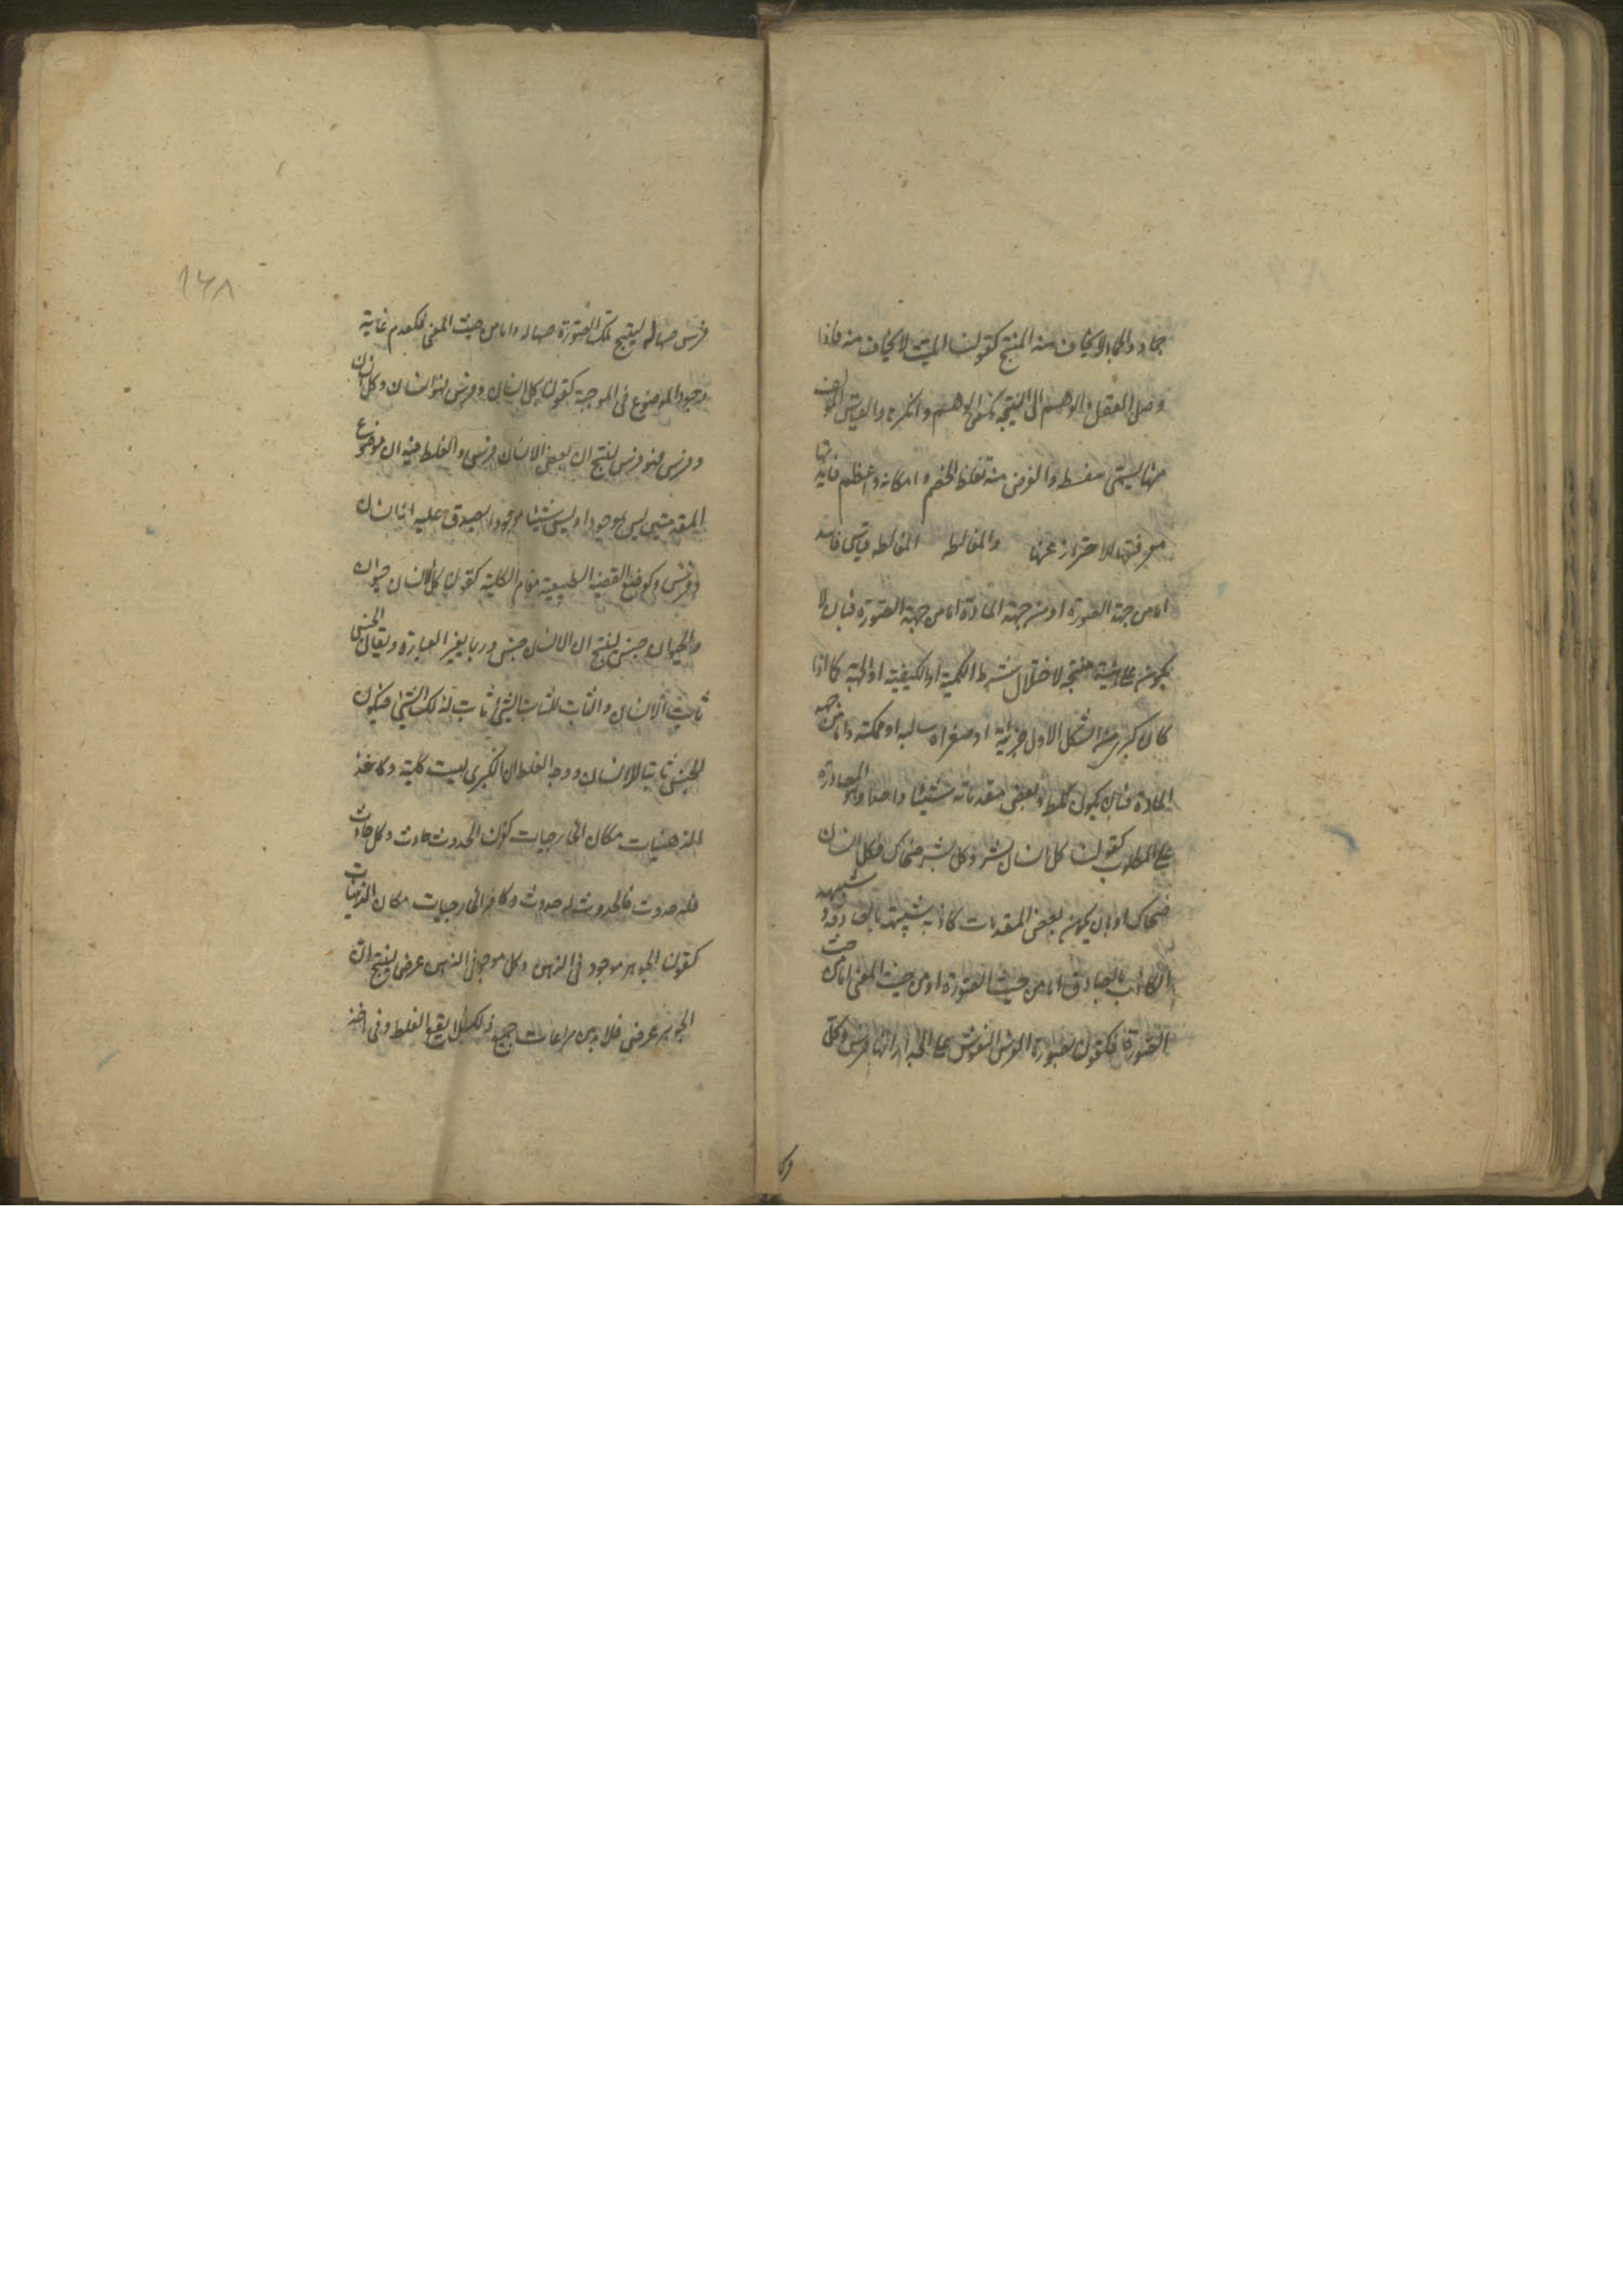 جماد والجماد لا يخاف منه المنتج كقولنا الميت لا يخاف منه فاذا
وصل العقل والوهم الى النتيجة نكص الوهم وانكرها والقياس المؤلف
منها يسمى سفسطة والغرض منه تغليط الخصم واسكاته واعظم فائدتها
معرفتها للاحتراز عنها والمغالطه المغالطه قياس فاسد
اما من جهة الصورة او من جهة المادة اما من جهة الصورة فبان لا
يكون على هيئة منتجه لاختلال شرط الكمية او الكيفية او الجهة كما اذا
كان كبرى الشكل الاول جزئية او صغراه سالبه او ممكنه واما من جهه
المادة فبان يكون المطلوب وبعض مقدماته شيئا واحدا وهو المصادرة
على المطلوب كقولنا كل انسان بشر وكل بشر ضحاك فكل انسان
ضحاك او بان يكون بعض المقدمات كاذبه شبيهة بالصادقه وشبهه
الكاذب بالصادق اما من حيث الصورة او من حيث المعنى اما من حيث
الصورة فكقولنا لصورة الفرس المنقوش على الجدار انها فرس وكل
وكل
١٦٨
فرس صهال لينتج ان تلك الصورة صهاله واما من حيث المعنى فكعدم رعاية
وجود الموضوع فى الموجبة كقولنا كل انسان وفرس فهو انسان وكل انسان
وفرس فهو فرس لينتج ان بعض الانسان فرس والغلط فيه ان موضوع
المقدمتين ليس بموجود اذ ليس شيئا موجودا يصدق عليه انه انسان
وفرس وكوضع القضية الطبيعية مقام الكلية كقولنا الانسان حيوان
والحيوان جنس لينتج ان الانسان جنس وربما يغير العبارة ويقال الجنس
ثابت للانسان والثابت للثابت للشئ ثابت لذلك الشئ فيكون
الجنس ثابتا للانسان ووجه الغلط ان الكبرى ليست كلية وكاخذ
الذهنيات مكان الخارجيات كقولنا الحدوث حادث وكل حادث
فله حدوث فالحدوث له حدوث وكاخذ الخارجيات مكان الذهنيات
كقولنا الجوهر موجود فى الذهن وكل موجود فى الذهن عرض لينتج ان
الجوهر عرض فلا بد من مراعات جميع ذلك لئلا يقع الغلط وفى اخذ